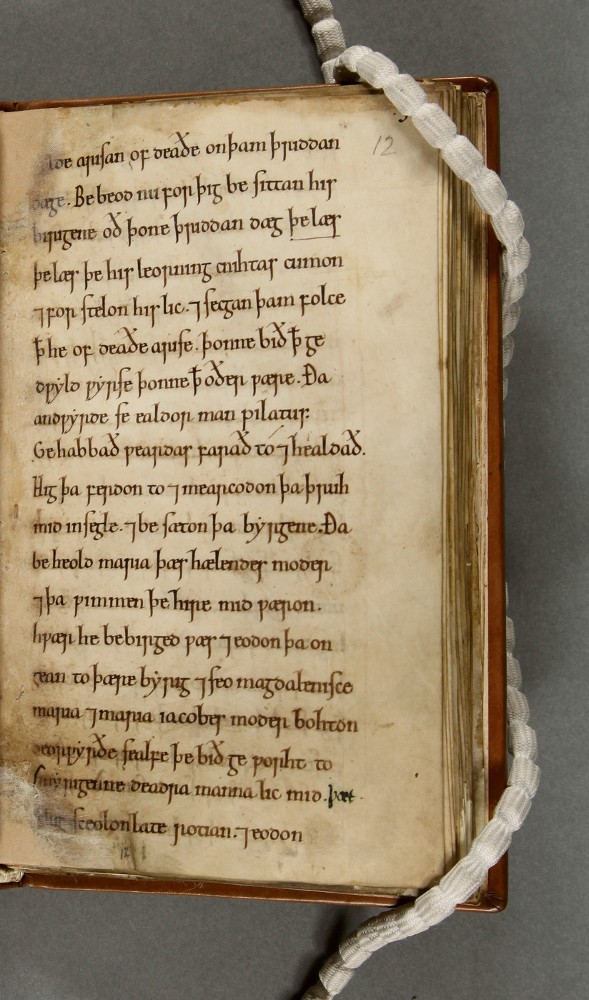 12
wde arisan of deaðe on þam þriddan
dæge. Be beod nu for þig be sittan his
birigene oð þone þriddan dæg þe læs
þe læs þe his leorning cnihtas cumon
⁊ for stelon his lic. ⁊ secgan þam folce
ꝥ he of deaðe arise. þonne bið ꝥ ge
dƿyld ƿyrse þonne ꝥ oðer ƿære. Ða
andƿyrde se ealdor man pilatus:
Gehabbað ƿeardas farað to ⁊ healdað.
Hig þa ferdon to ⁊ mearcodon þa þruh
mid insegle. ⁊ be sæton þa byrigene. Ða
be heold maria þæs hælendes moder
⁊ þa ƿimmen þe hire mid ƿæron.
hƿær he bebirged ƿæs ⁊ eodon þa on
gean to þære byrig ⁊ seo magdalenisce
maria ⁊ maria iacobes moder bohton
deorƿyrðe sealfe þe bið ge ƿorht to
smyrigenne deadra manna lic mid. þæt
hig sceolon late rotian. ⁊ eodon
12